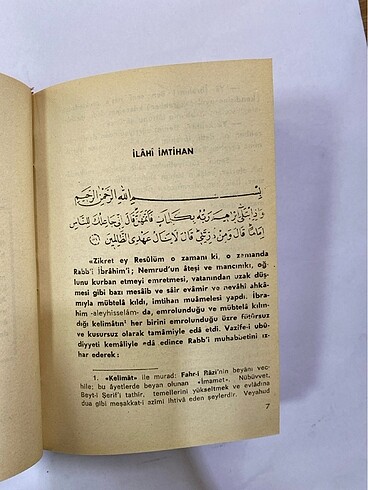 İLÂHİ İMTİHAN
بِسْمِ اللهِ الرَّحْمٰنِ الرَّحِيمِ
وَاِذِ ابْتَلٰى اِبْرٰهِيمَ رَبُّهُ بِكَلِمَاتٍ فَاَتَمَّهُنَّ قَالَ اِنِّي جَاعِلُكَ لِلنَّاسِ
اِمَامًا قَالَ وَمِنْ ذُرِّيَّتِي قَالَ لَا يَنَالُ عَهْدِي الظَّالِمِينَ
«Zikret ey Resûlüm o zamanı ki, o zamanda
Rabb'i İbrâhim'i; Nemrud'un ateşi ve mancınıkı, oğ-
lunu kurban etmeyi emretmesi, vatanından uzak düş-
mesi gibi bazı mesâib ve sâir evâmir ve nevâhi ahkâ-
mıyla mübtelâ kıldı, imtihan muâmelesi yapdı. İbra-
him -aleyhisselâm- da, emrolunduğu ve mübtelâ kılın-
dığı kelimâtın¹ her birini emrolunduğu üzre fütûrsuz
ve kusursuz olarak tamâmiyle edâ etdi. Vazife-i ubû-
diyyeti kemâliyle edâ edince Rabb'i muhabbetini iz-
har ederek:
1. «Kelimât» ile murad: Fahr-i Râzi'nin beyânı vec-
hile; bu âyetlerde beyan olunan «İmamet», Nübüvvet,
Beyt-i Şerif'i tathir, temellerini yükseltmek ve evlâdına
dua gibi meşakkat-i azîmi ihtivâ eden şeylerdir. Veyahud
7